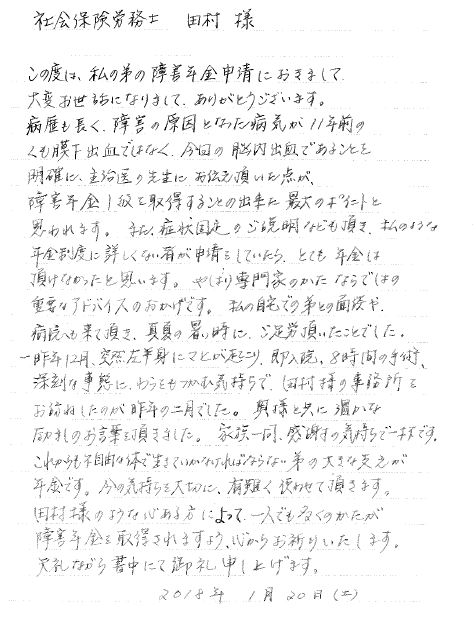 社会保険労務士　田村 様
この度は、私の弟の障害年金申請におきまして
大変お世話になりまして、ありがとうございます。
病歴も長く、障害の原因となった病気が11年前の
くも膜下出血ではなく、今回の脳内出血であることを
明確に、主治医の先生にお伝え頂いた点が、
障害年金1級を取得することの出来た最大のポイントと
思われます。また、症状固定のご説明なども頂き、私のような
年金制度に詳しくない者が申請をしていたら、とても年金は
頂けなかったと思います。やはり専門家のかたならではの
重要なアドバイスのおかげです。私の自宅での弟との面談や、
病院へも来て頂き、真夏の暑い時に、ご足労頂いたことでした。
一昨年12月、突然左半身にマヒが起こり、即入院、8時間の手術、
深刻な事態に、わらをもつかむ気持ちで、田村様の事務所を
お訪ねしたのが昨年の二月でした。奥様と共に温かな
励ましのお言葉を頂きました。家族一同、感謝の気持ちで一杯です。
これからも不自由な体で生きていかなければならない弟の大きな支えが
年金です。今の気持ちを大切に、有難く使わせて頂きます。
田村様のような心ある方によって、一人でも多くのかたが
障害年金を取得されますよう、心からお祈りいたします。
失礼ながら書中にて御礼申し上げます。
2018年 1月20日(土)